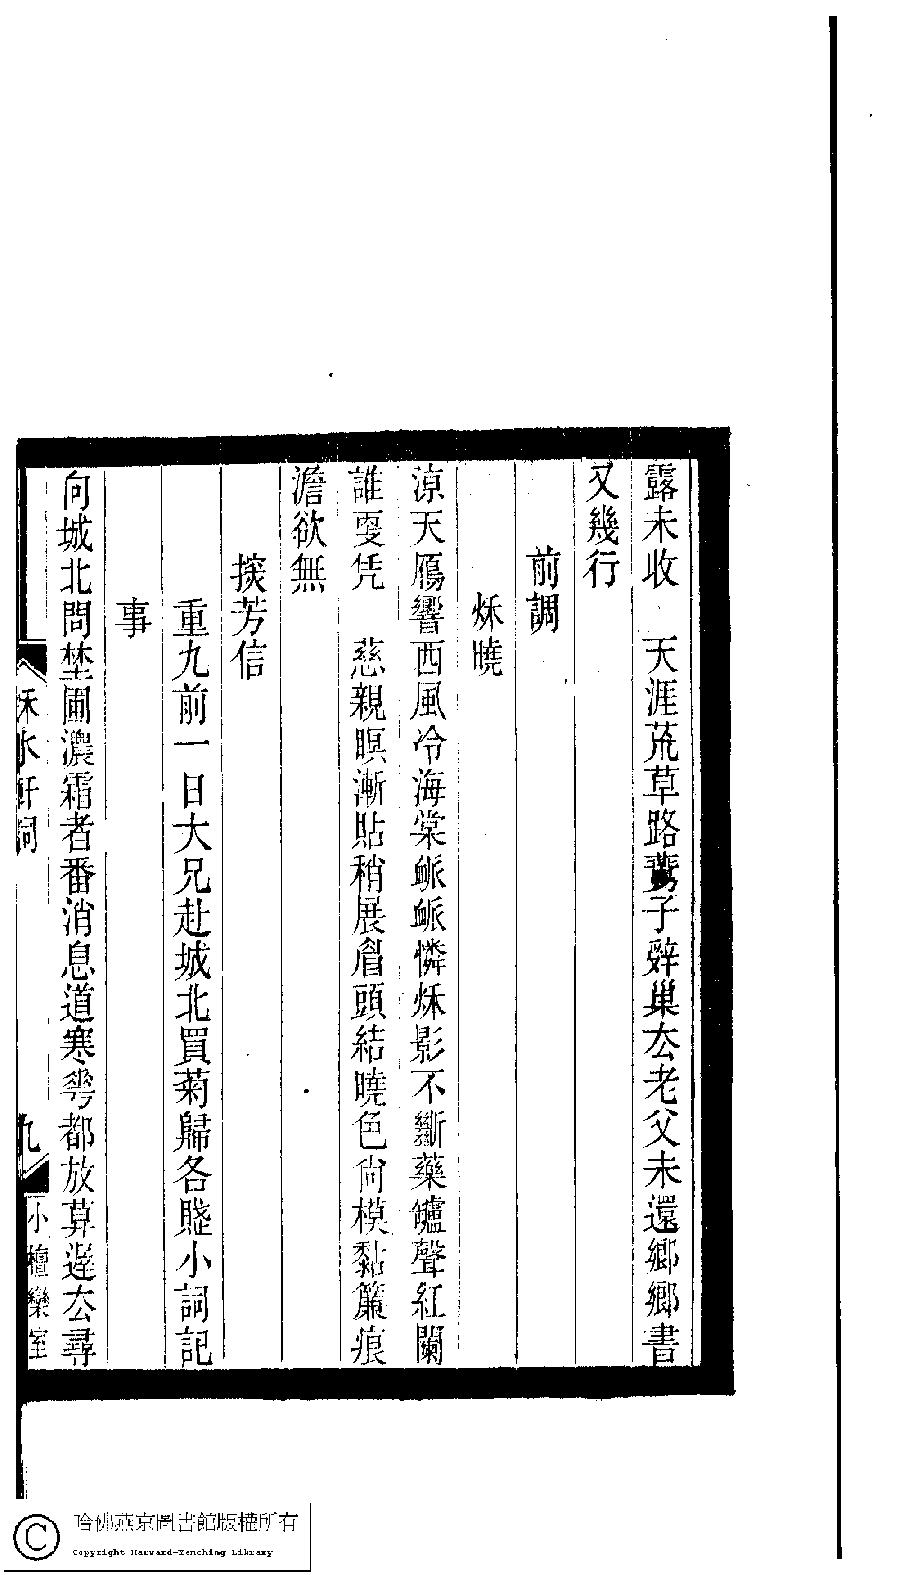 露未收　天涯荒草路鷰子辤巢厺老父未還鄉鄉書
又幾行
前調
秌曉
涼天鴈響西風冷海棠衇衇憐秌影不斷藥鑪聲紅闌
誰耎凭　慈親瞑漸貼稍展眉頭結曉色尙模黏簾痕
澹欲無
掞芳信
重九前一日大兄赴城北買菊歸各賤小詞記
事
向城北問埜圃濃霜者番消息道寒花都放算遲厺尋
秌水軒詞
九
小檀欒室
哈佛燕京圖書館版權所有
Copyright Harvard-Yenching Library